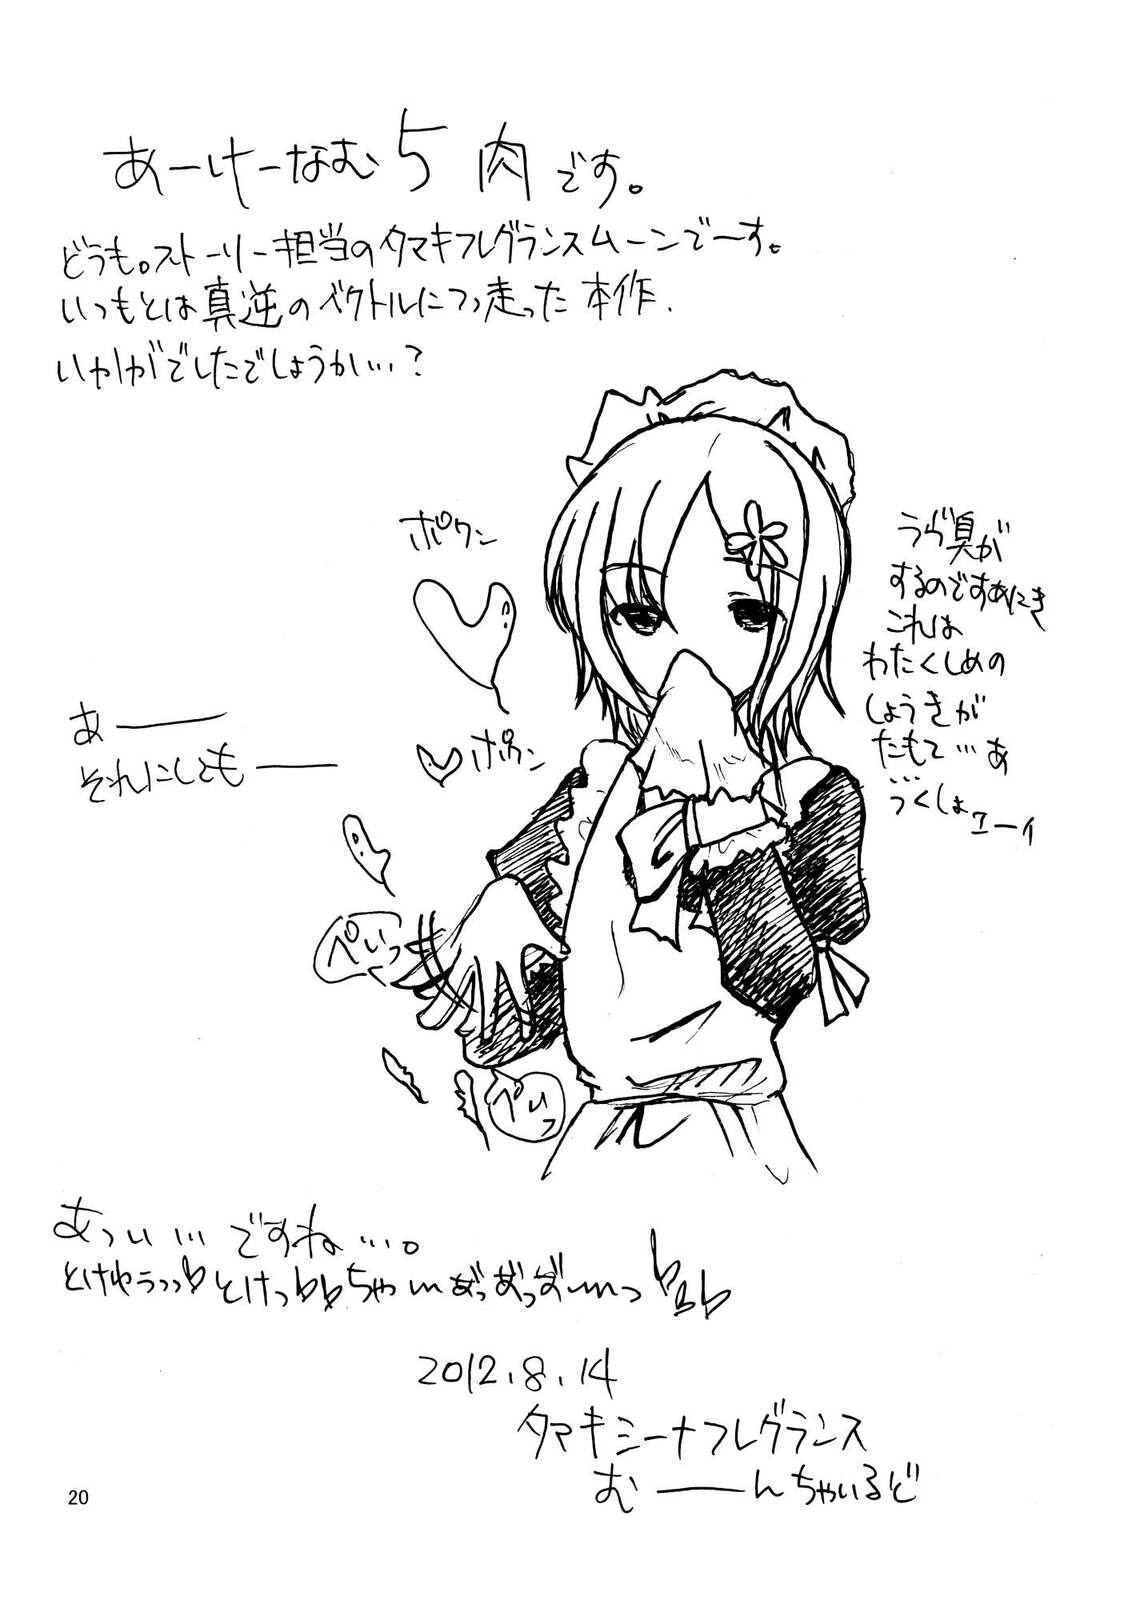 あーけーなむ5肉です。
どうも。ストーリー担当のタマキフレグランスムーンでーす。
いつもとは真逆のベクトルにつっ走った本作、
いかがでしたでしょうか…?
ポワン
ポワン
うら臭が
するのですあにき
これは
わたくしめの
しょうきが
たもて…あ
…
つくしょエーイ
あー
それにしてもー
ぺいっ
ぺいっ
あつい…ですね…。
2012.8.14
タマキシーナフレグランス
むーんちゃいるど
20